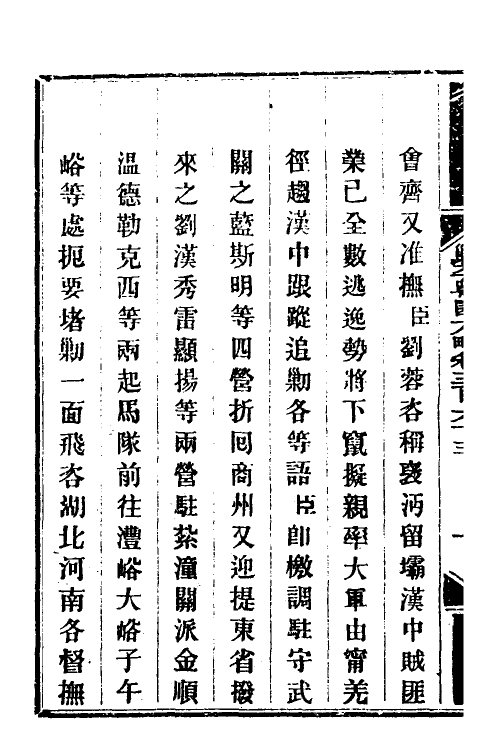 會齊又准撫臣劉蓉咨稱襃沔留壩漢中賊匪
業已全數逃逸勢將下竄擬親率大軍由甯羌
徑趨漢中跟蹤追勦各等語臣卽檄調駐守武
關之藍斯明等四營折囘商州又迎提東省撥
來之劉漢秀雷顯揚等兩營駐紮潼關派金順
溫德勒克西等兩起馬隊前往灃峪大峪子午
峪等處扼要堵勦一面飛咨湖北河南各督撫